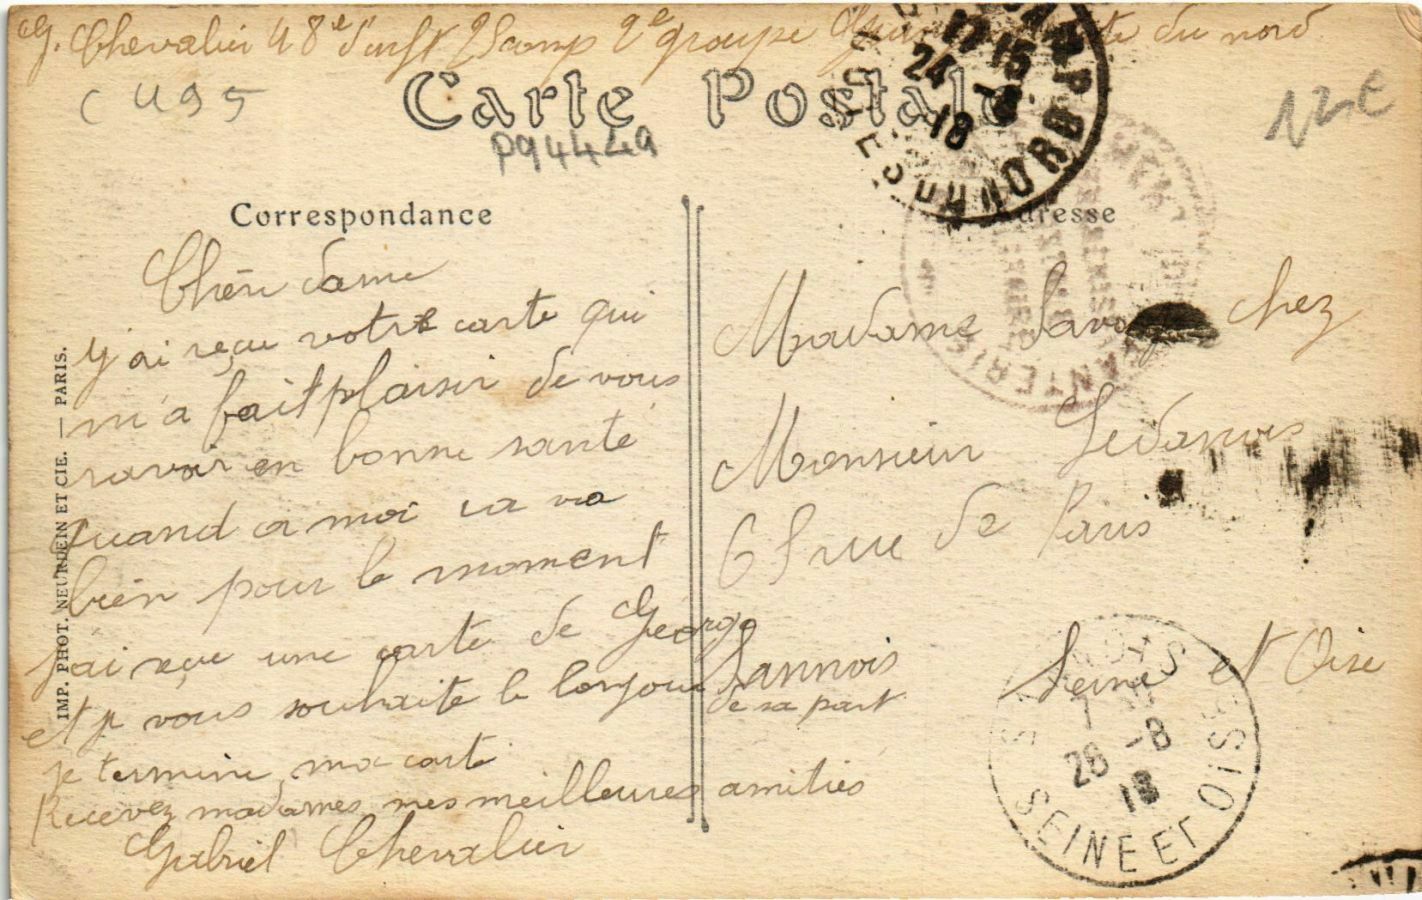 G. Chevalier 48e d'inft 2e groupe du nord
C U95
Carte Postale
P94449
12€
Correspondance
Adresse
Chère dame
y ai reçu votre carte qui
m'a fait plaisir de vous
savoir en bonne santé
quand a moi ca va
bien pour le moment
j'ai reçu une carte de George
et je vous souhaite le bonjour de sa part
je termine ma carte
Recevez madames mes meilleures amitiés
Gabriel Chevalier
Madame chez
Monsieur Ledanois
rue de Paris
Sannois Seine et Oise
IMP. PHOT. NEURDEIN ET CIE. — PARIS.
17 15
24 -8
18
NORD
SANNOIS
26 -8
18
SEINE ET OISE